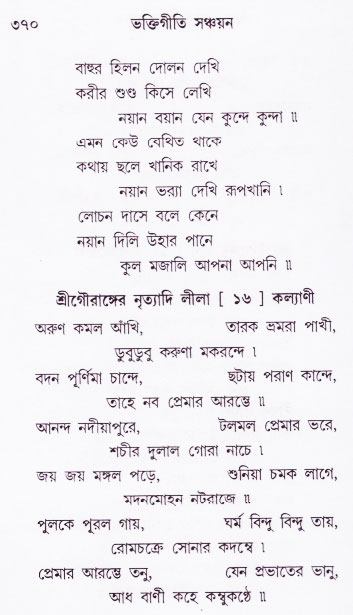 ৩৭০ ভক্তিগীতি সঞ্চয়ন
বাহুর হিলন দোলন দেখি
করীর শুণ্ড কিসে লেখি
নয়ান বয়ান যেন কুন্দে কুন্দা ॥
এমন কেউ বেথিত থাকে
কথায় ছলে খানিক রাখে
নয়ান ভর‍্যা দেখি রূপখানি ।
লোচন দাসে বলে কেনে
নয়ান দিলি উহার পানে
কুল মজালি আপনা আপনি ॥
শ্রীগৌরাঙ্গের নৃত্যাদি লীলা [ ১৬ ] কল্যাণী
অরুণ কমল আঁখি, তারক ভ্রমরা পাখী,
ডুবুডুবু করুণা মকরন্দে ।
বদন পূর্ণিমা চান্দে, ছটায় পরাণ কান্দে,
তাহে নব প্রেমার আরম্ভে ॥
আনন্দ নদীয়াপুরে, টলমল প্রেমার ভরে,
শচীর দুলাল গোরা নাচে ।
জয় জয় মঙ্গল পড়ে, শুনিয়া চমক লাগে,
মদনমোহন নটরাজে ॥
পুলকে পূরল গায়, ঘর্ম বিন্দু বিন্দু তায়,
রোমচক্রে সোনার কদম্বে ।
প্রেমার আরম্ভে তনু, যেন প্রভাতের ভানু,
আধ বাণী কহে কম্বুকণ্ঠে ॥